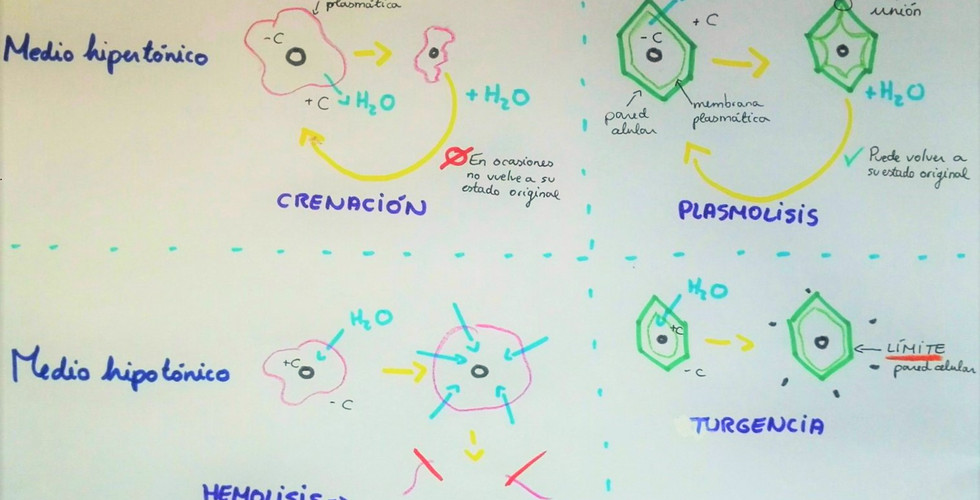 plasmática
Medio hipertónico
-C
+C
H₂O
+H₂O
En ocasiones
no vuelve a su
estado original
CRENACIÓN
+C
-C
unión
+H₂O
pared
celular
membrana
plasmática
Puede volver a
su estado original
PLASMOLISIS
Medio hipotónico
H₂O
+C
-C
HEMOLISIS
H₂O
+C
-C
LÍMITE
pared celular
TURGENCIA